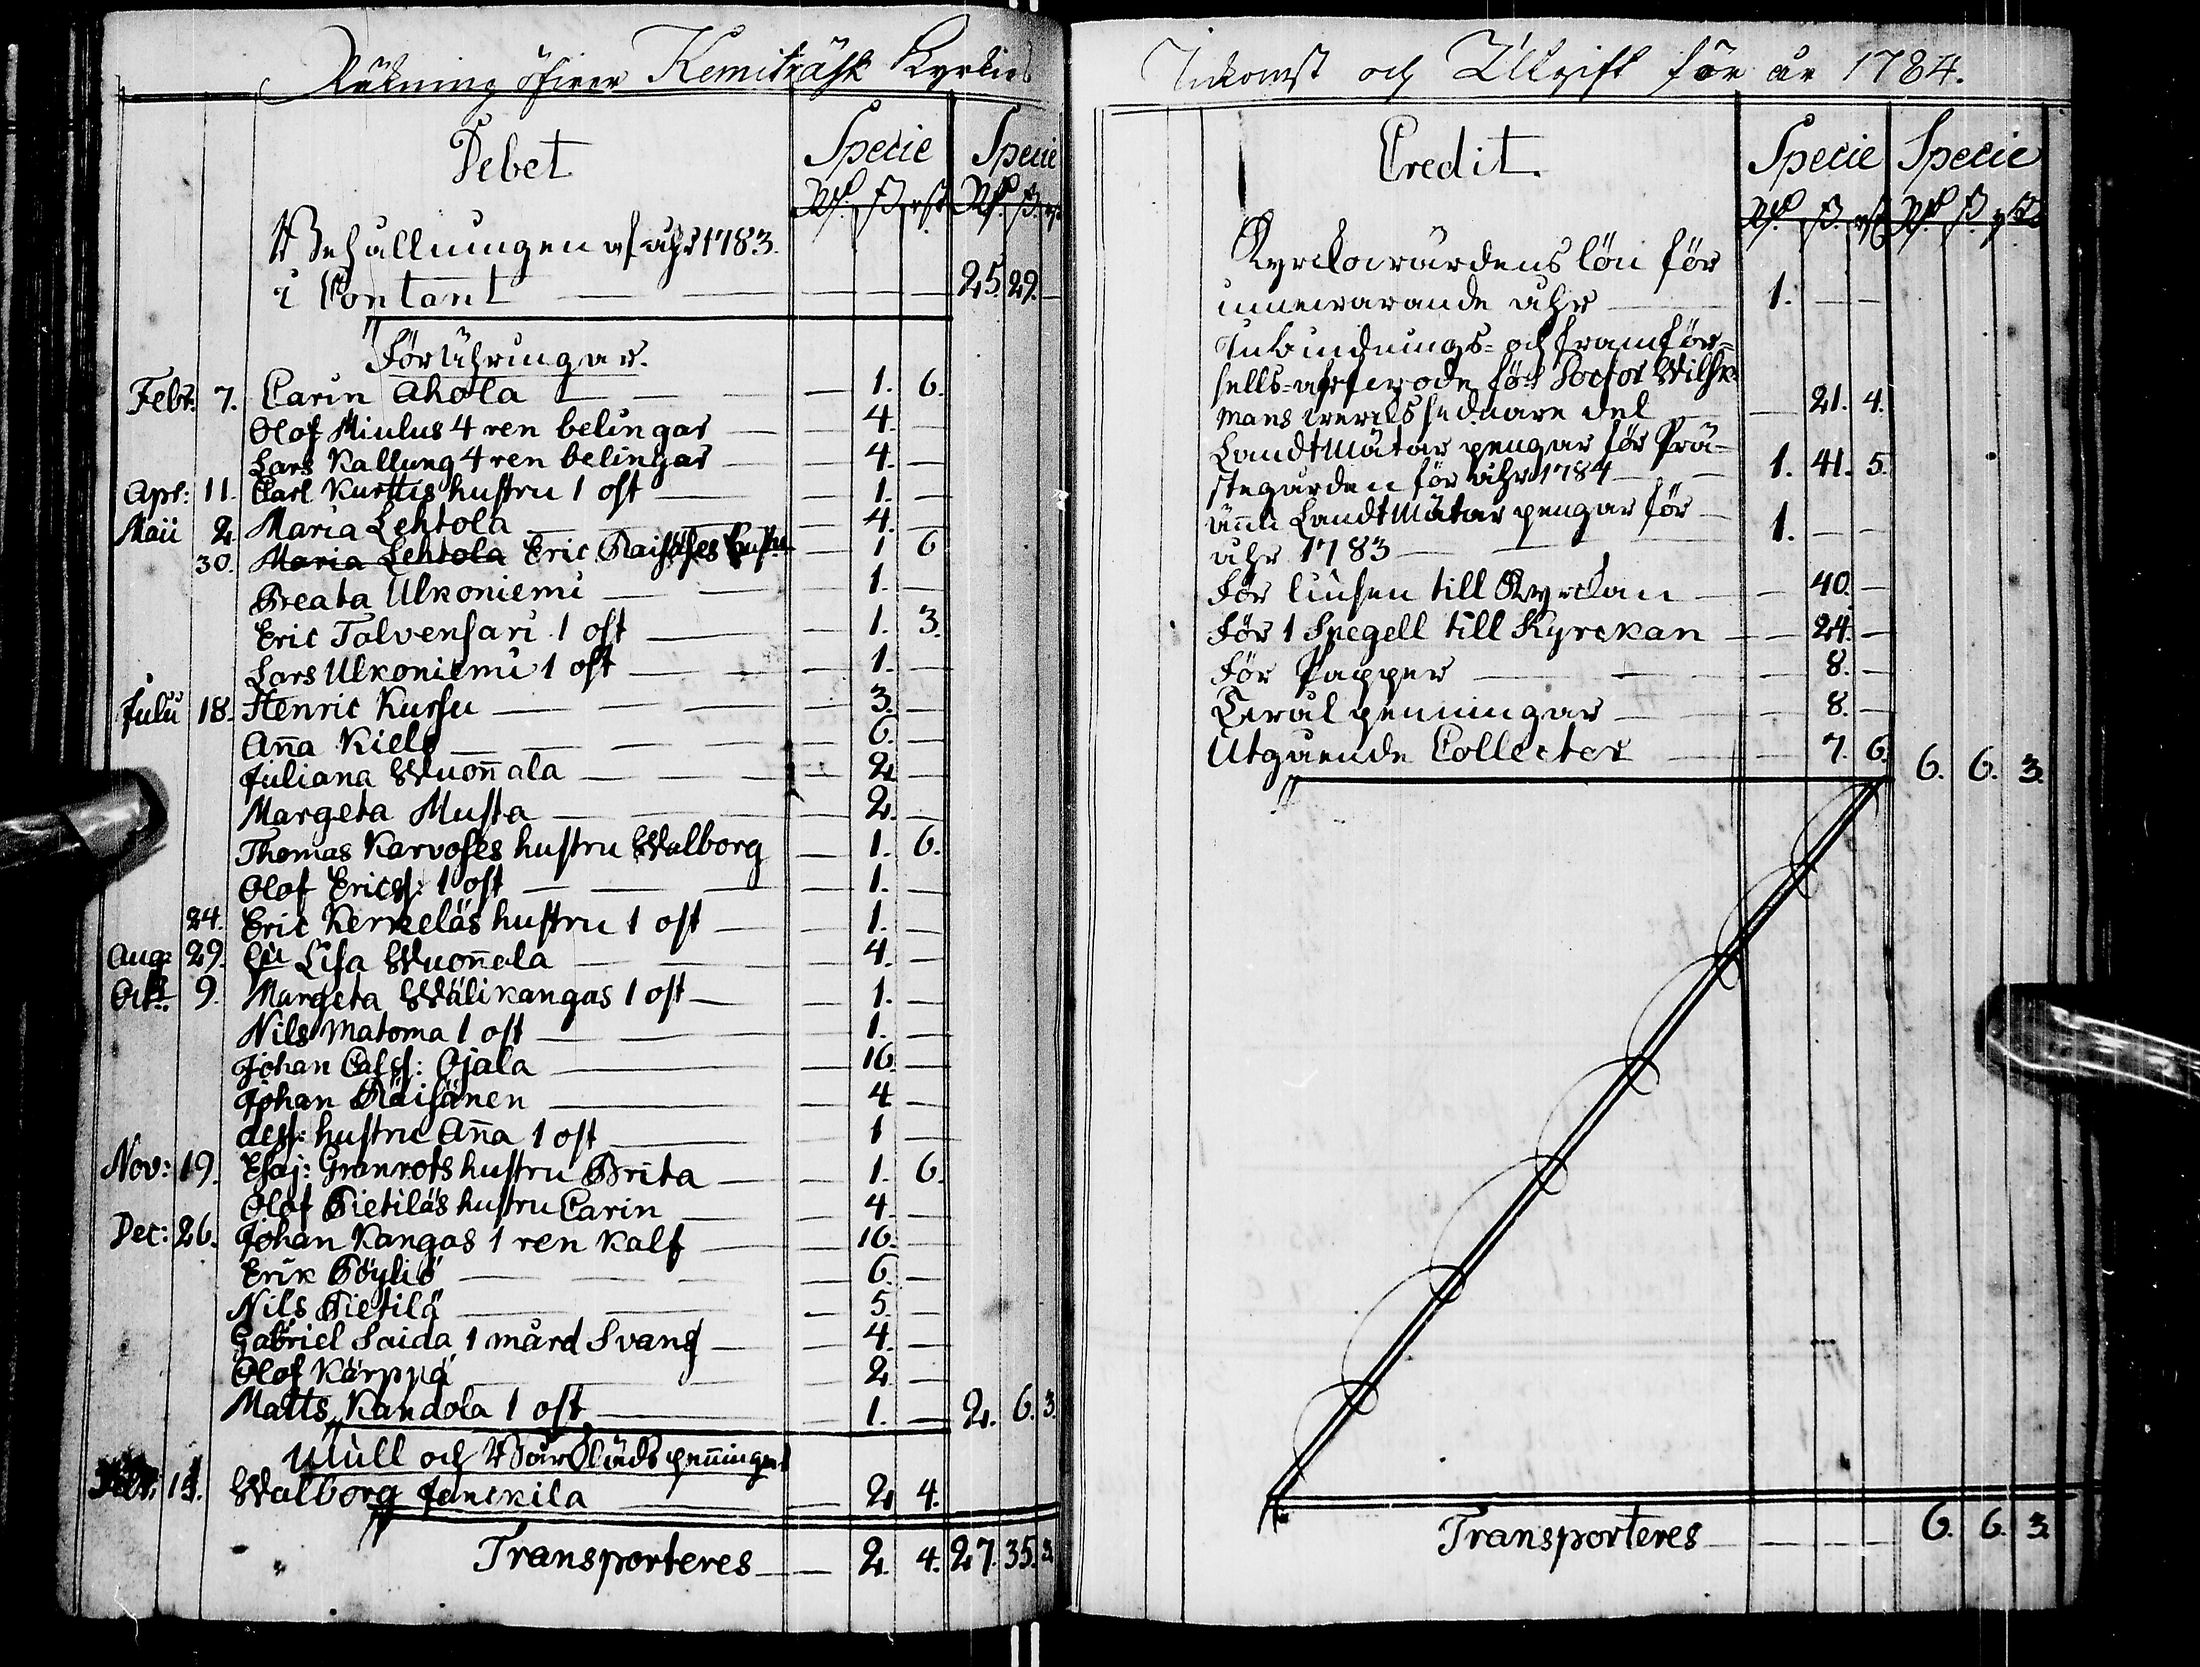 Räkning öfwer Kemiträsk Kyrkios
Debet
Specie Specie
Rd. ß. rst. Rd. ß. rst.
Behållningen af åhr 1783.
i Contant — 25. 29. —
Förähringar.
Febr: 7. Carin Ahola — 1. 6.
Olof Miulus 4 ren belingar — 4. —
Lars Kallung 4 ren belingar — 4. —
Apr: 11. Carl Kurttis hustru 1 ost — 1. —
Maii 2. Maria Lehtola — 4. —
30. Maria Lehtola Eric Raises hustru — 1 6
Beata Ulkoniemi — 1. —
Eric Talvensari 1 ost — 1. 3.
Lars Ulkoniemi 1 ost — 1. —
Julii 18. Henric Kursu — 3. —
Aña Kielo — 6. —
Juliana Wuoñala — 2 —
Margeta Musta — 2. —
Thomas Karvoses hustru Walborg — 1. 6.
Olof Ericss: 1 ost — 1. —
24. Eric Kerkeläs hustru 1 ost — 1. —
Aug: 29. Lisa Wuoñala — 4. —
Oct: 9. Margeta Wälikangas 1 ost — 1. —
Nils Matoma 1 ost — 1. —
Johan Ojala — 16. —
Johan Räisänen — 4 —
dess: hustru Aña 1 ost — 1 —
Nov: 19. Esaj: Granrots hustru Brita — 1. 6.
Olof Pietiläs hustru Carin — 4. —
Dec: 26. Johan Kangas 1 ren kalf — 16. —
Erik Pöyliö — 6. —
Nils Pietilä — 5. —
Gabriel Saida 1 mård Svans — 4. —
Olof Kärppä — 2 —
Matts Kandola 1 ost — 1. — 2. 6. 3.
Mull och Bårklädspeñingar
Walborg Janckila — 2 4.
Transporteres — 2. 4. 27. 35. 3
Inkomst och Utgift för år 1784.
Credit.
Specie Specie
Rd. ß. rst. Rd. ß. rst.
Kyrckowärdens lön för
innewarande åhr — 1. — —
Inbindnings- och framför-
sells- för Doctor
mans wercks sednare del — 21. 4.
Landtmätar pengar för Prä-
stegården för åhr 1784 — 1. 41. 5.
Landtmätar pengar för
åhr 1783 — 1. — —
För liusen till Kyrckan — 40. —
För 1 Spegell till Kyrckan — 24. —
För Papper — 8. —
penningar — 8. —
Utgående Collecter — 7. 6. 6. 6. 3.
Transporteres — 6. 6. 3